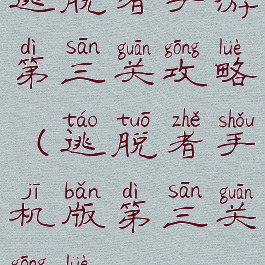 逃脱者手游
dì sān guān gōng lüè
第三关攻略
táo tuō zhě shǒu
（逃脱者手
jī bǎn dì sān guān
机版第三关
gōng lüè